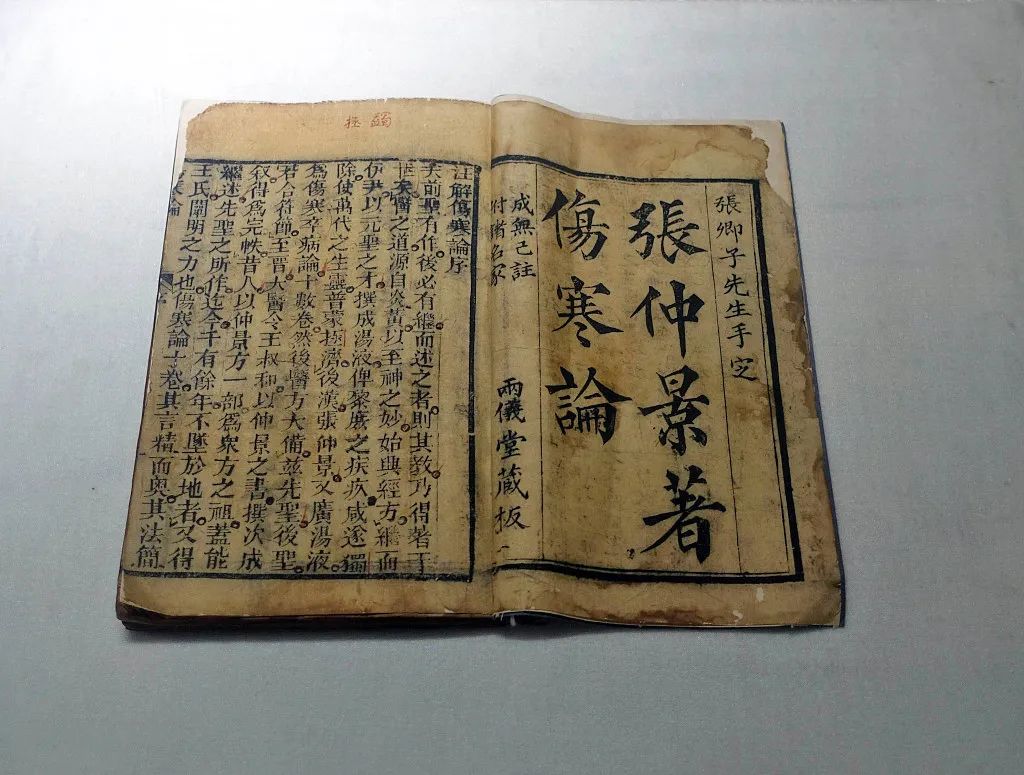 張卿子先生手定
張仲景著
傷寒論
成無己註
附諸名家
兩儀堂藏板
極 蠲
註解傷寒論序
夫前聖有作。後必有繼而述之者。則其教乃得著于
世矣。醫之道源自炎黃。以至神之妙。始興經方。繼而
伊尹以元聖之才。撰成湯液。俾黎庶之疾疢咸遂獨
除。使萬代之生靈普蒙拯濟。後漢張仲景。又廣湯液。
爲傷寒卒病論十數卷。然後醫方大備。茲先聖後聖。
若合符節。至晉。大醫令王叔和以仲景之書撰次成
叙。得爲完帙。昔人以仲景方一部。爲衆方之祖。蓋能
繼述先聖之所作。迄今千有餘年。不墜於地者。又得
王氏闡明之力也。傷寒論十卷。其言精而奧。其法簡